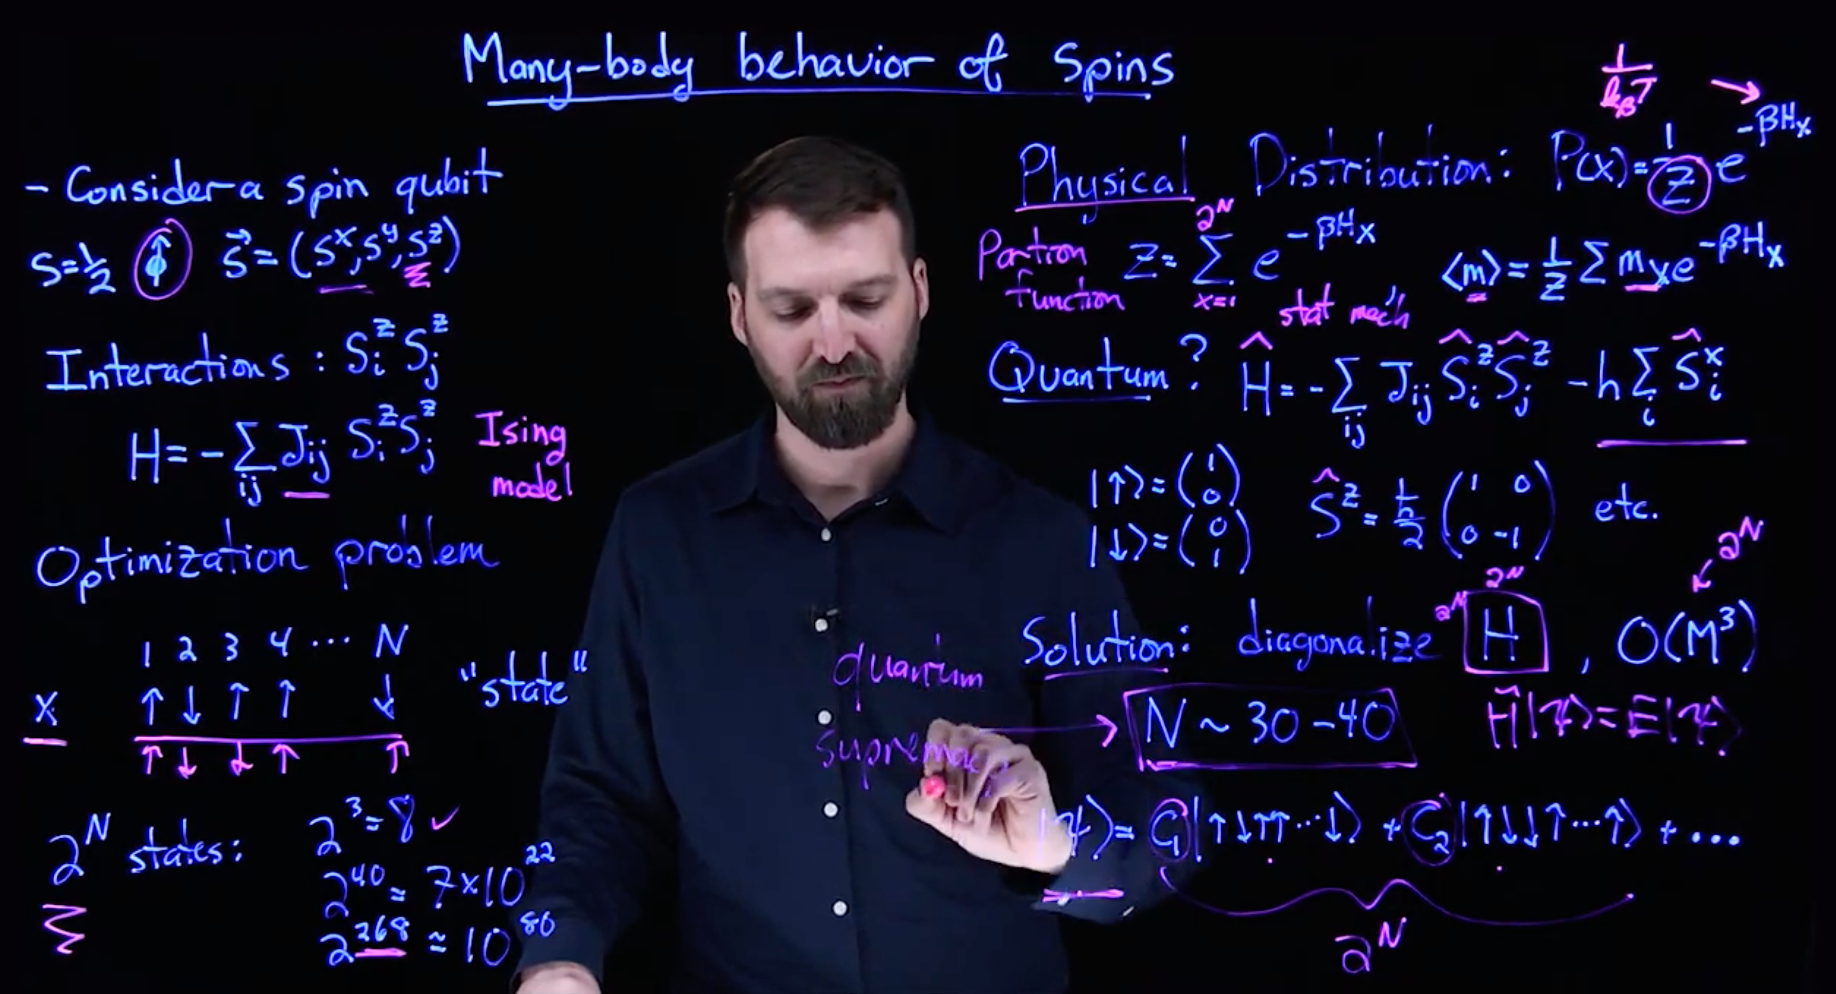 Many-body behavior of Spins
- Consider a spin qubit
S=½ ↑ S⃗ = (Sˣ, Sʸ, Sᶻ)
Interactions : Sᵢᶻ Sⱼᶻ
H = - ∑ᵢⱼ Jᵢⱼ Sᵢᶻ Sⱼᶻ
Ising
model
Optimization problem
1 2 3 4 ... N
x ↑ ↓ ↑ ↑ ↓ "state"
↑ ↓ ↓ ↑ ↑
2ᴺ states:
2³ = 8 ✓
2⁴⁰ ≈ 7×10²²
2²⁶⁸ ≈ 10⁸⁰
1/k_BT →
Physical Distribution: P(x) = 1/Z e^{-βHₓ}
Partion
function
Z = ∑_{x=1}^{2ᴺ} e^{-βHₓ}
⟨m⟩ = 1/Z ∑ mₓ e^{-βHₓ}
stat mech
Quantum? Ĥ = - ∑ᵢⱼ Jᵢⱼ Ŝᵢᶻ Ŝⱼᶻ - h ∑ᵢ Ŝᵢˣ
|↑⟩ = (1 0)
|↓⟩ = (0 1)
Ŝᶻ = ħ/2 (1 0 0 -1) etc.
Solution: diagonalize 2ᴺ H 2ᴺ, O(M³) ← 2ᴺ
quantum
supremacy → N ~ 30-40
Ĥ|ψ⟩ = E|ψ⟩
|ψ⟩ = C₁|↑↓↑↑...↓⟩ + C₂|↑↓↓↑...↑⟩ + ...
2ᴺ